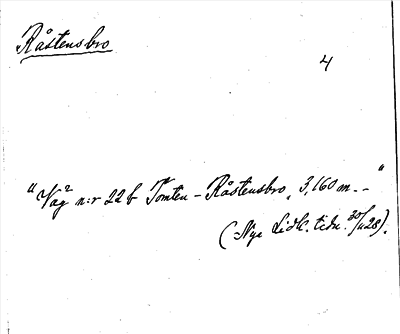 Råstensbro
4
"Väg n:r 22 b Tomten - Råstensbro, 3,160 m--"
(Nya Lidk. tidn. 30/11 28).